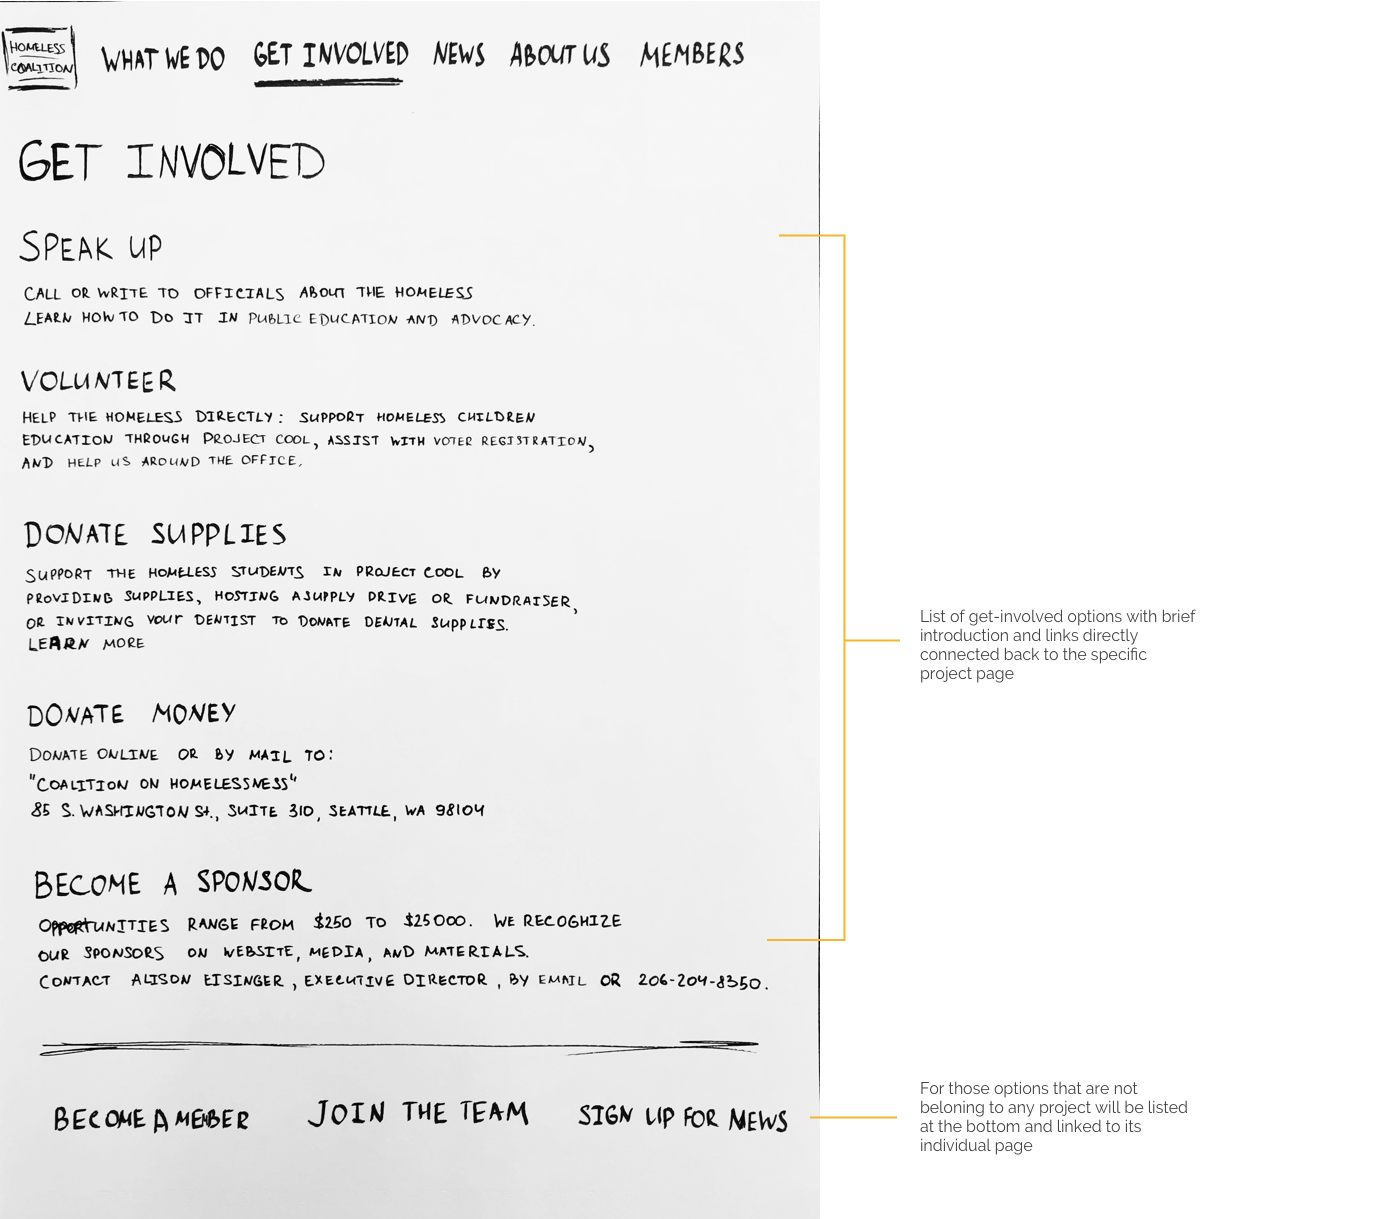 HOMELESS
COALITION
WHAT WE DO GET INVOLVED NEWS ABOUT US MEMBERS
GET INVOLVED
SPEAK UP
CALL OR WRITE TO OFFICIALS ABOUT THE HOMELESS
LEARN HOW TO DO IT IN PUBLIC EDUCATION AND ADVOCACY.
VOLUNTEER
HELP THE HOMELESS DIRECTLY: SUPPORT HOMELESS CHILDREN
EDUCATION THROUGH PROJECT COOL, ASSIST WITH VOTER REGISTRATION,
AND HELP US AROUND THE OFFICE.
DONATE SUPPLIES
SUPPORT THE HOMELESS STUDENTS IN PROJECT COOL BY
PROVIDING SUPPLIES, HOSTING A SUPPLY DRIVE OR FUNDRAISER,
OR INVITING YOUR DENTIST TO DONATE DENTAL SUPPLIES.
LEARN MORE
DONATE MONEY
DONATE ONLINE OR BY MAIL TO:
"COALITION ON HOMELESSNESS"
85 S. WASHINGTON St., SUITE 310, SEATTLE, WA 98104
BECOME A SPONSOR
OPPORTUNITIES RANGE FROM $250 TO $25000. WE RECOGHIZE
OUR SPONSORS ON WEBSITE, MEDIA, AND MATERIALS.
CONTACT ALISON EISINGER, EXECUTIVE DIRECTOR, BY EMAIL OR 206-204-8350.
BECOME A MEMBER JOIN THE TEAM SIGN UP FOR NEWS
List of get-involved options with brief
introduction and links directly
connected back to the specific
project page
For those options that are not
beloning to any project will be listed
at the bottom and linked to its
individual page